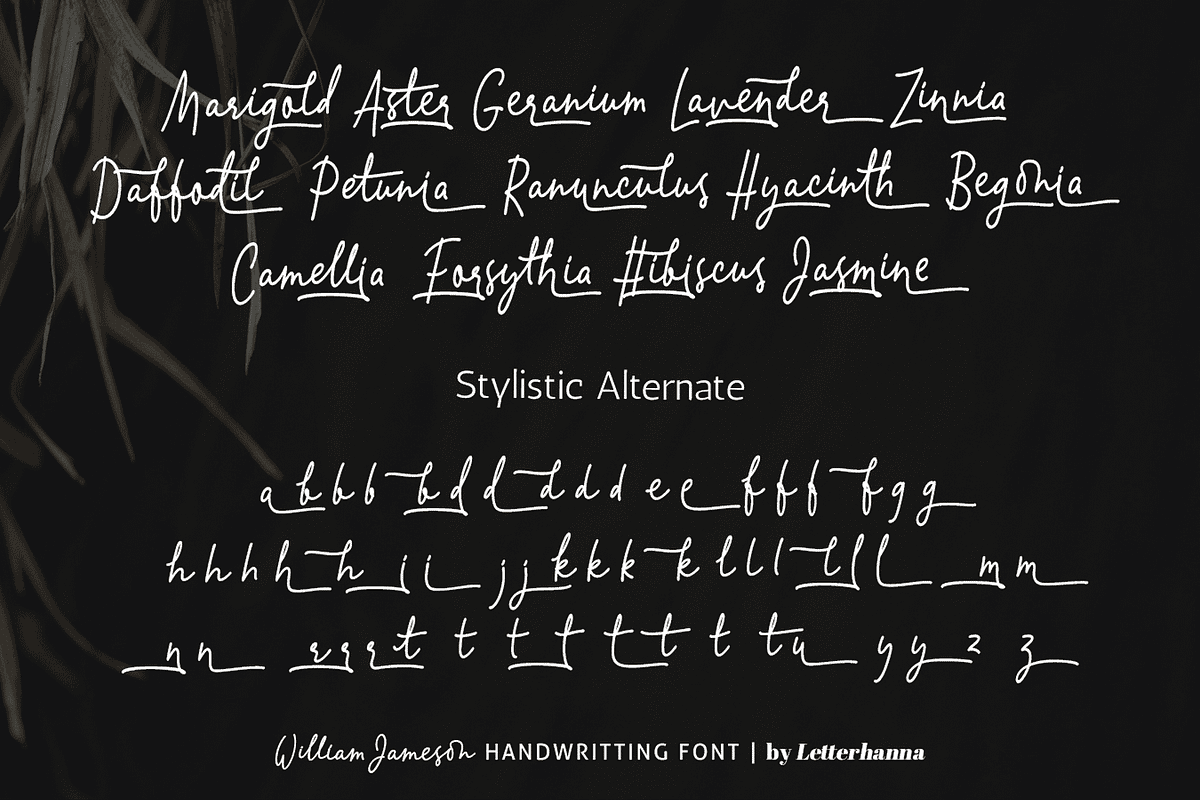 Marigold Aster Geranium Lavender Zinnia
Daffodil Petunia Ranunculus Hyacinth Begonia
Camellia Forsythia Hibiscus Jasmine
Stylistic Alternate
a b b b b d d d d d e e f f f f g g
h h h h h i i j j k k k k l l l l l l m m
n n r r r t t t t t t t t u y y z z
William Jameson HANDWRITTING FONT | by Letterhanna